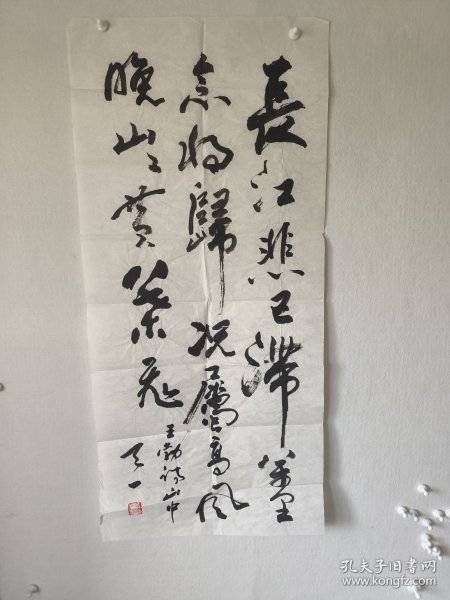 長江悲已滞萬里
念將歸况屬高風
晚山山黄葉飛
王勃詩山中
天一
孔夫子旧书网
www.kongfz.com